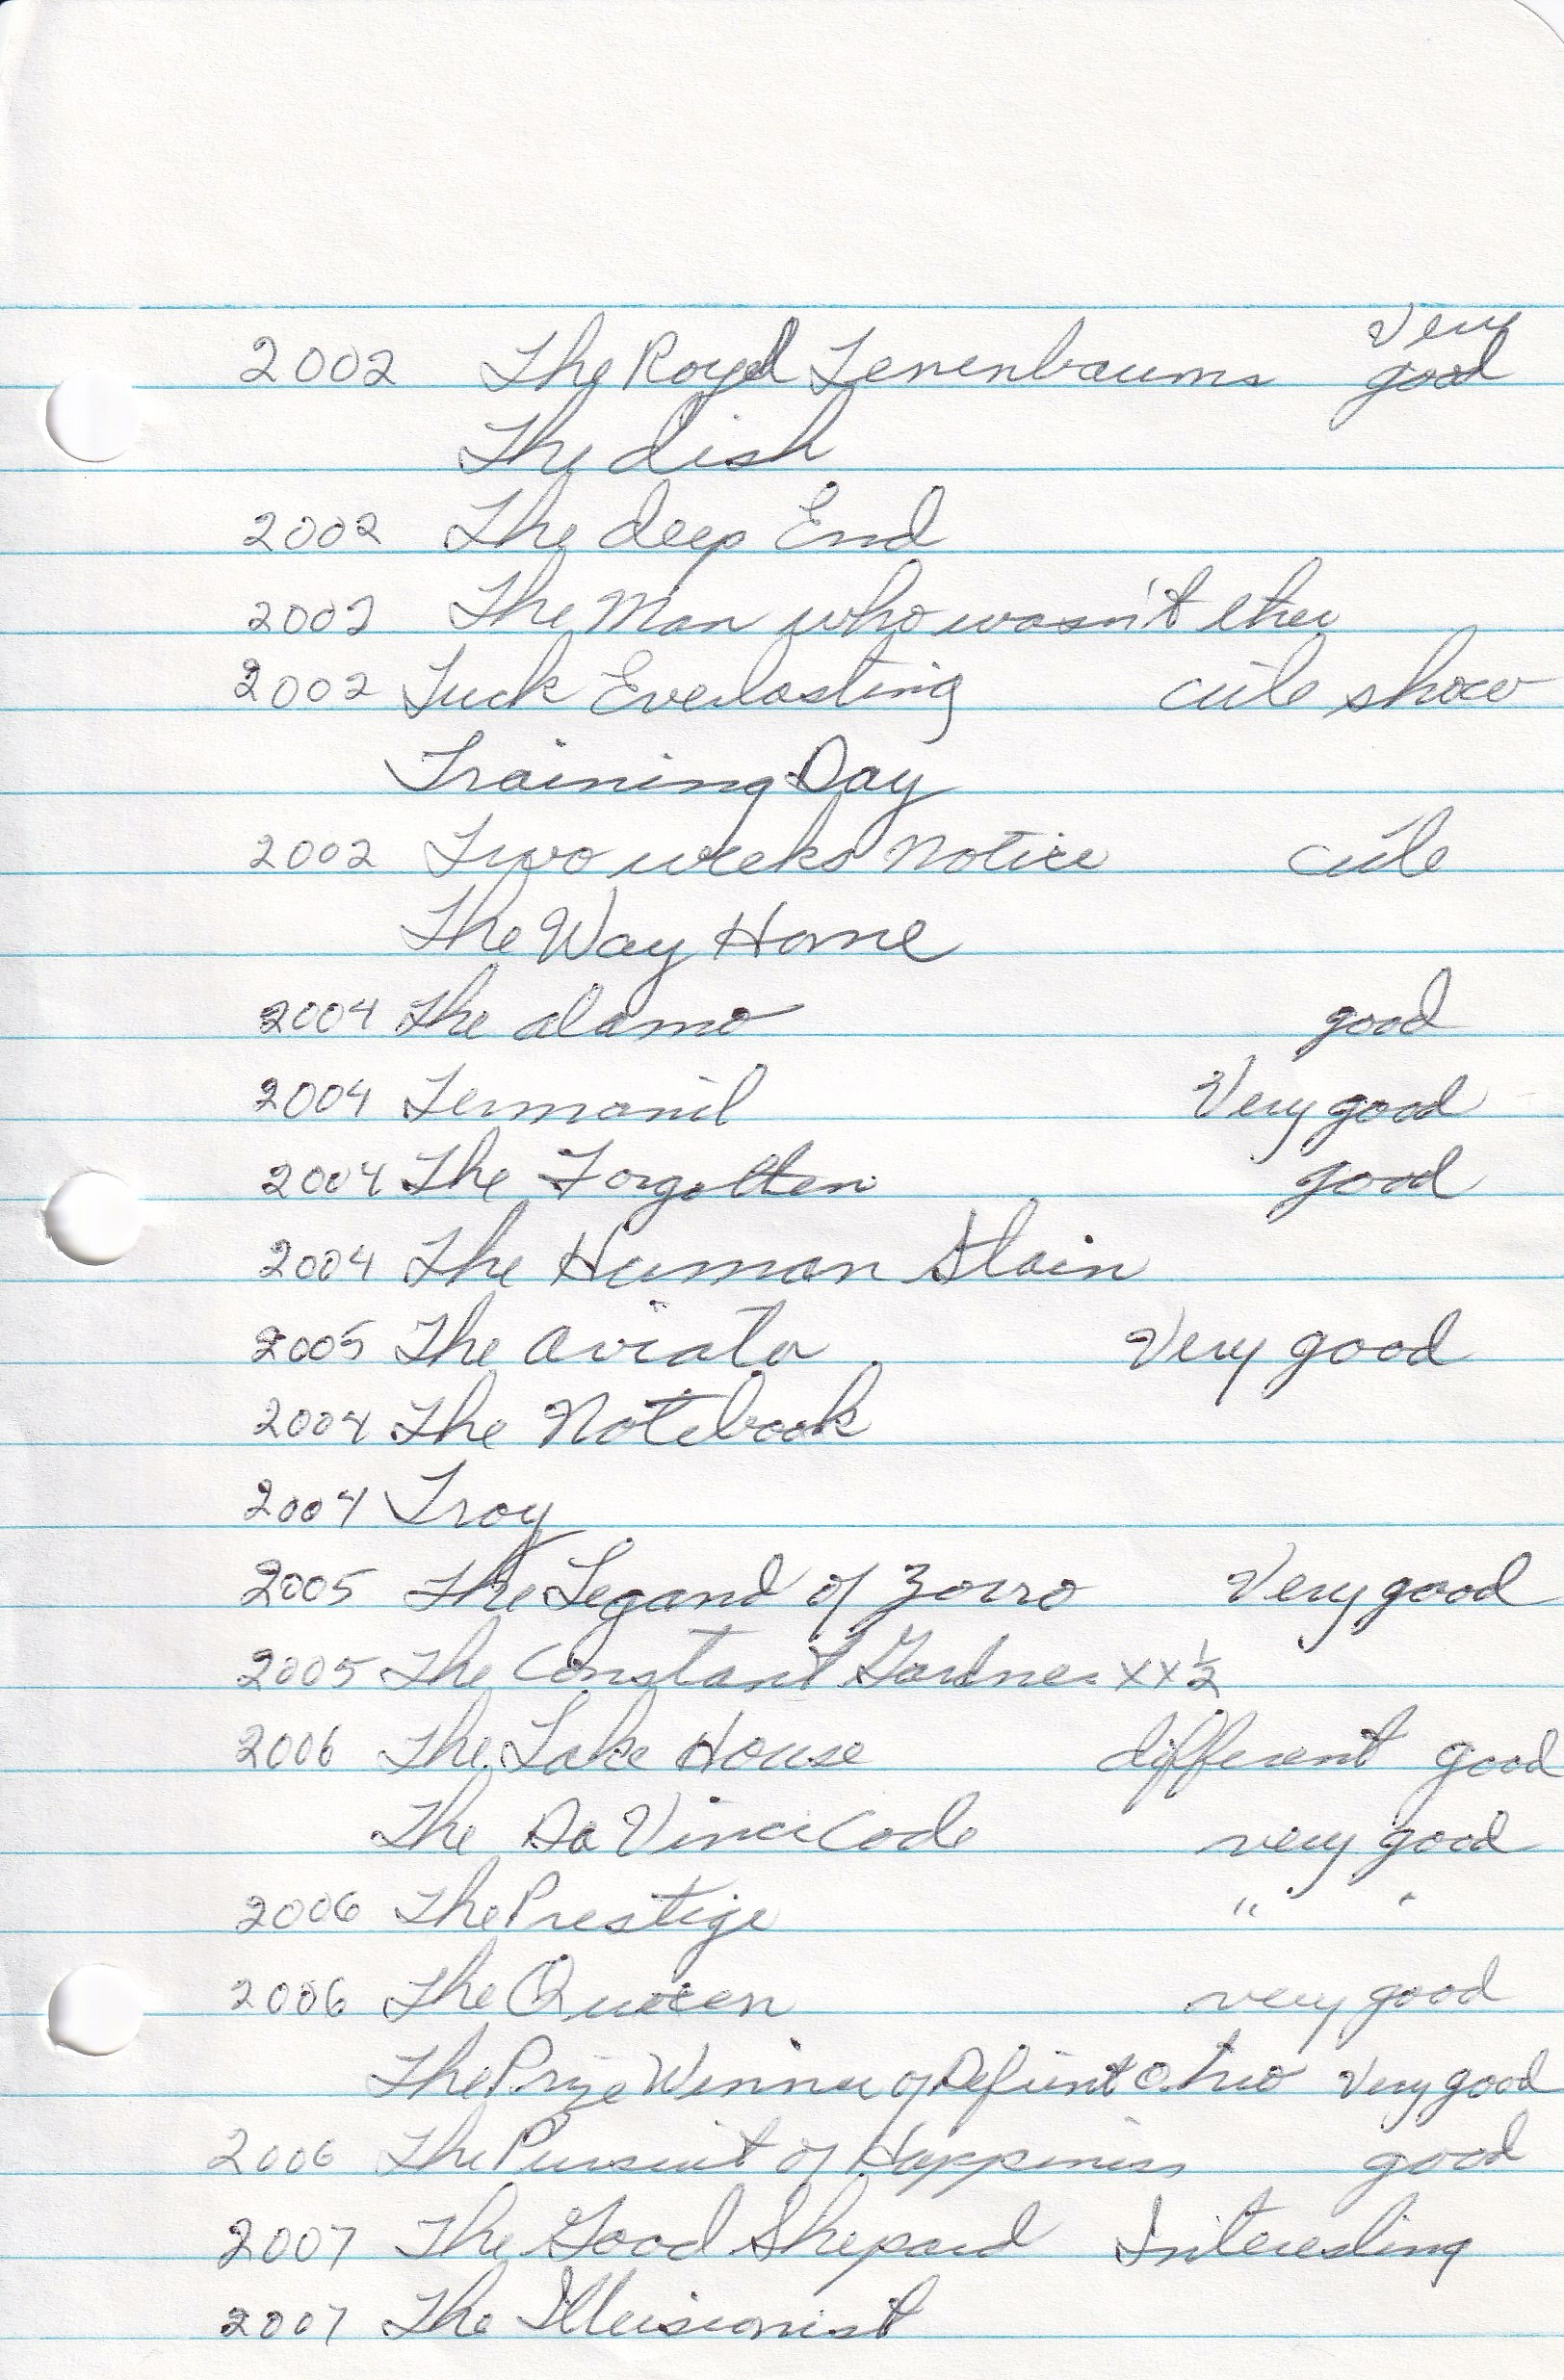 2002 The Royal Tenenbaums Very good
The dish
2002 The deep End
2002 The Man who wasn't ther
2002 Tuck Everlasting cute show
Training Day
2002 Two weeks Notice cute
The Way Home
2004 The alamo good
2004 Termanil Very good
2004 The Forgotten good
2004 The Human Stain
2005 The Aviator Very good
2004 The Notebook
2004 Troy
2005 The Legand of Zorro Very good
2005 The Constant Gardner xx½
2006 The Lake House different good
The Da Vinci Code very good
2006 The Prestige " "
2006 The Queen very good
The Prize Winner of Defiint Ohio Very good
2006 The Pursuit of Happiness good
2007 The Good Shepard Interesting
2007 The Illusionist